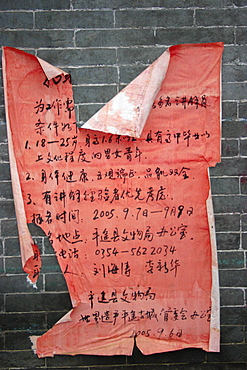 为工作需
名讲解员
条件如下
1. 18—25岁，身高1.6米
具有高中毕业以
上文化程度的男女青年。
2. 身体健康，五观端正，品貌双全
3. 有讲解经验者优先考虑。
报名时间：2005.9.7日—9月9日
名地点：平遥县文物局办公室
电话：0354—5622034
刘海涛
平遥县文物局
世界遗产平遥古城管委会办公室
2005.9.6日